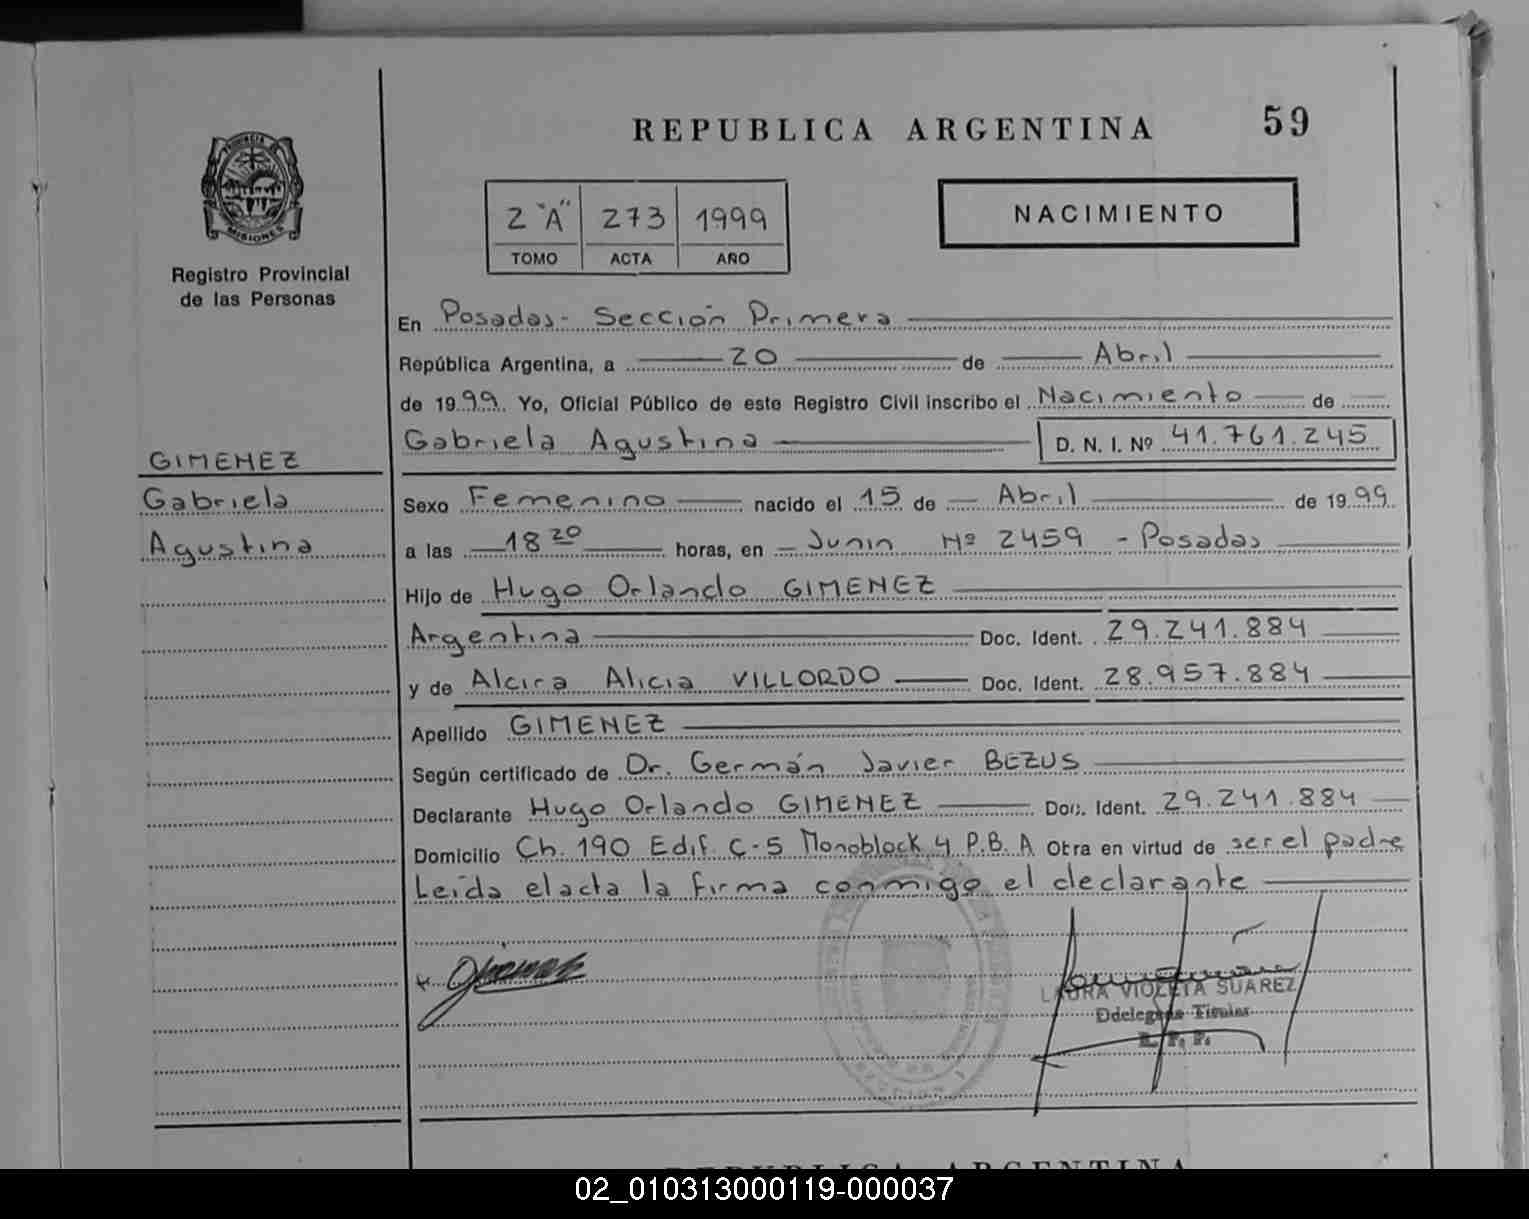 REPUBLICA ARGENTINA 59
PROVINCIA DE
MISIONES
Registro Provincial
de las Personas
2 "A" 273 1999
TOMO ACTA AÑO
NACIMIENTO
En Posadas - Sección Primera
República Argentina, a 20 de Abril
de 1999. Yo, Oficial Público de este Registro Civil inscribo el Nacimiento de
Gabriela Agustina D. N. I. Nº 41.761.245
GIMENEZ
Gabriela
Agustina
Sexo Femenino nacido el 15 de Abril de 1999
a las 18 20 horas, en Junin Nº 2459 - Posadas
Hijo de Hugo Orlando GIMENEZ
Argentina Doc. Ident. 29.241.884
y de Alcira Alicia VILLORDO Doc. Ident. 28.957.884
Apellido GIMENEZ
Según certificado de Dr. Germán Javier BEZUS
Declarante Hugo Orlando GIMENEZ Doc. Ident. 29.241.884
Domicilio Ch. 190 Edif. C-5 Monoblock 4 P.B. A Otra en virtud de ser el padre
Leída el acta la firma conmigo el declarante
LAURA VIOLETA SUAREZ
Ddelegada Titular
R. P. P.
REPUBLICA ARGENTINA
02_010313000119-000037